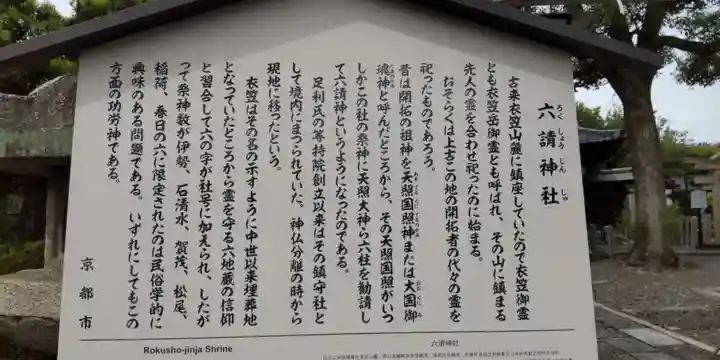 六請神社
ろくしょうじんじゃ
古来衣笠山麓に鎮座していたので衣笠御霊
とも衣笠岳御霊とも呼ばれ、その山に鎮まる
先人の霊を合わせ祀ったのに始まる。
おそらくは上古この地の開拓者の代々の霊を
祀ったものであろう。
昔は開拓の祖神を天照国照神または大国御
魂神と呼んだところから、その天照国照がいつ
しかこの社の祭神に天照大神ら六柱を勧請し
て六請神というようになったのである。
足利氏の等持院創立以来はその鎮守社と
して境内にまつられていた。神仏分離の時から
現地に移ったという。
衣笠はその名の示すように中世以来埋葬地
となっていたところから霊を守る六地蔵の信仰
と習合して六の字が社号に加えられ、したが
って祭神数が伊勢、石清水、賀茂、松尾、
稲荷、春日の六に限定されたのは民俗学的に
興味のある問題である。いずれにしてもこの
方面の功労神である。
京都市
Rokusho-jinja Shrine
六請神社